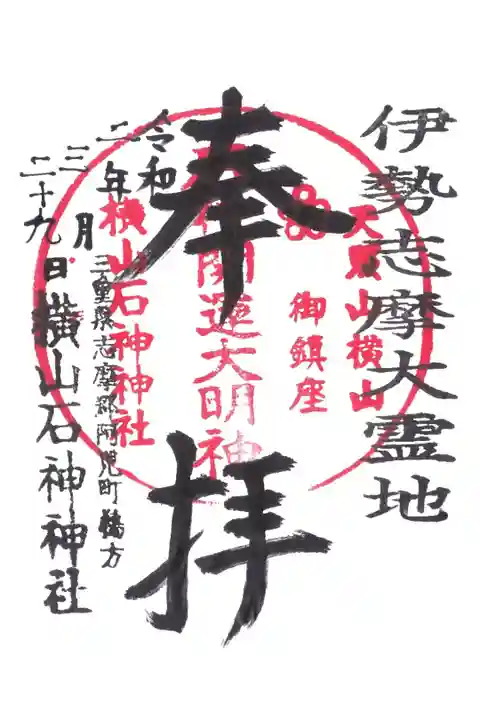 伊勢志摩大霊地
天
山横山
御鎮座
奉拝
開運大明神
令和
二年
三月
二十九日
横山石神神社
三重県志摩郡阿児町鵜方
横山石神神社